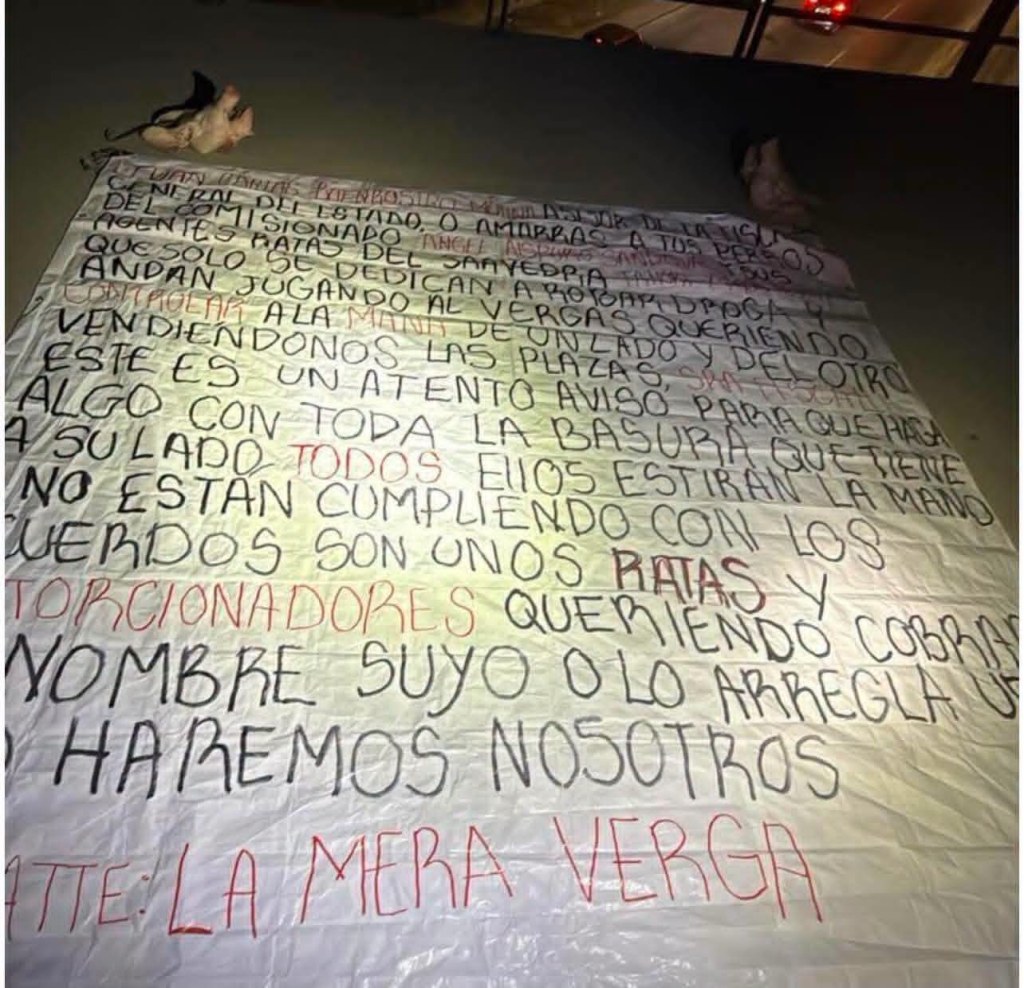 JUAN ASESOR DE LA
GENERAL DEL ESTADO, O AMARRAS A TUS PERROS
DEL COMISIONADO ANGEL SANDOVAL
AGENTES RATAS DEL SAAVEDRA
QUE SOLO SE DEDICAN A DROGA Y
ANDAN JUGANDO AL VERGAS QUERIENDO
CONTROLAR A LA MAÑA DE UN LADO Y DEL OTRO
VENDIÉNDONOS LAS PLAZAS, SRA
ESTE ES UN ATENTO AVISO PARA QUE HAGA
ALGO CON TODA LA BASURA QUE TIENE
A SU LADO TODOS EllOS ESTIRAN LA MANO
NO ESTÁN CUMPLIENDO CON LOS
CUERDOS SON UNOS RATAS Y
TORCIONADORES QUERIENDO COBRA
NOMBRE SUYO O LO ARREGLA
HAREMOS NOSOTROS
ATTE: LA MERA VERGA